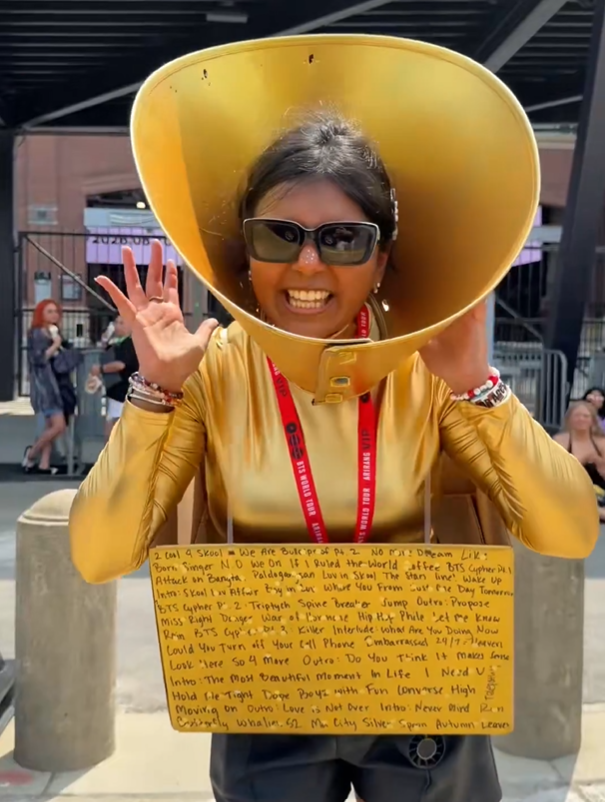 2020.08
BTS WORLD TOUR
ARIRANG
ARIRANG VIP
WORLD TOUR
2 Cool 4 Skool We Are Bulletproof Pt 2 No More Dream Like
Born Singer N.O We On If I Ruled the World Coffee BTS Cypher Pt 1
Attack on Bangtan Paldogangsan Luv in Skool The Stars Wake Up
Intro: Skool Luv Affair Boy in Luv Where You From Just One Day Tomorrow
BTS Cypher Pt 2: Triptych Spine Breaker Jump Outro: Propose
Miss Right Danger War of Hormone Hip Hop Phile Let Me Know
Rain BTS Cypher Pt 3 Killer Interlude: What Are You Doing Now
Could You Turn off Your Cell Phone Embarrassed 24/7 = Heaven
Look Here So 4 More Outro: Do You Think It Makes Sense
Intro: The Most Beautiful Moment In Life I Need U
Hold Me Tight Dope Boys with Fun Converse High
Moving on Outro: Love is Not Over Intro: Never Mind Run
Whalien 52 Ma City Silver Spoon Autumn Leaves